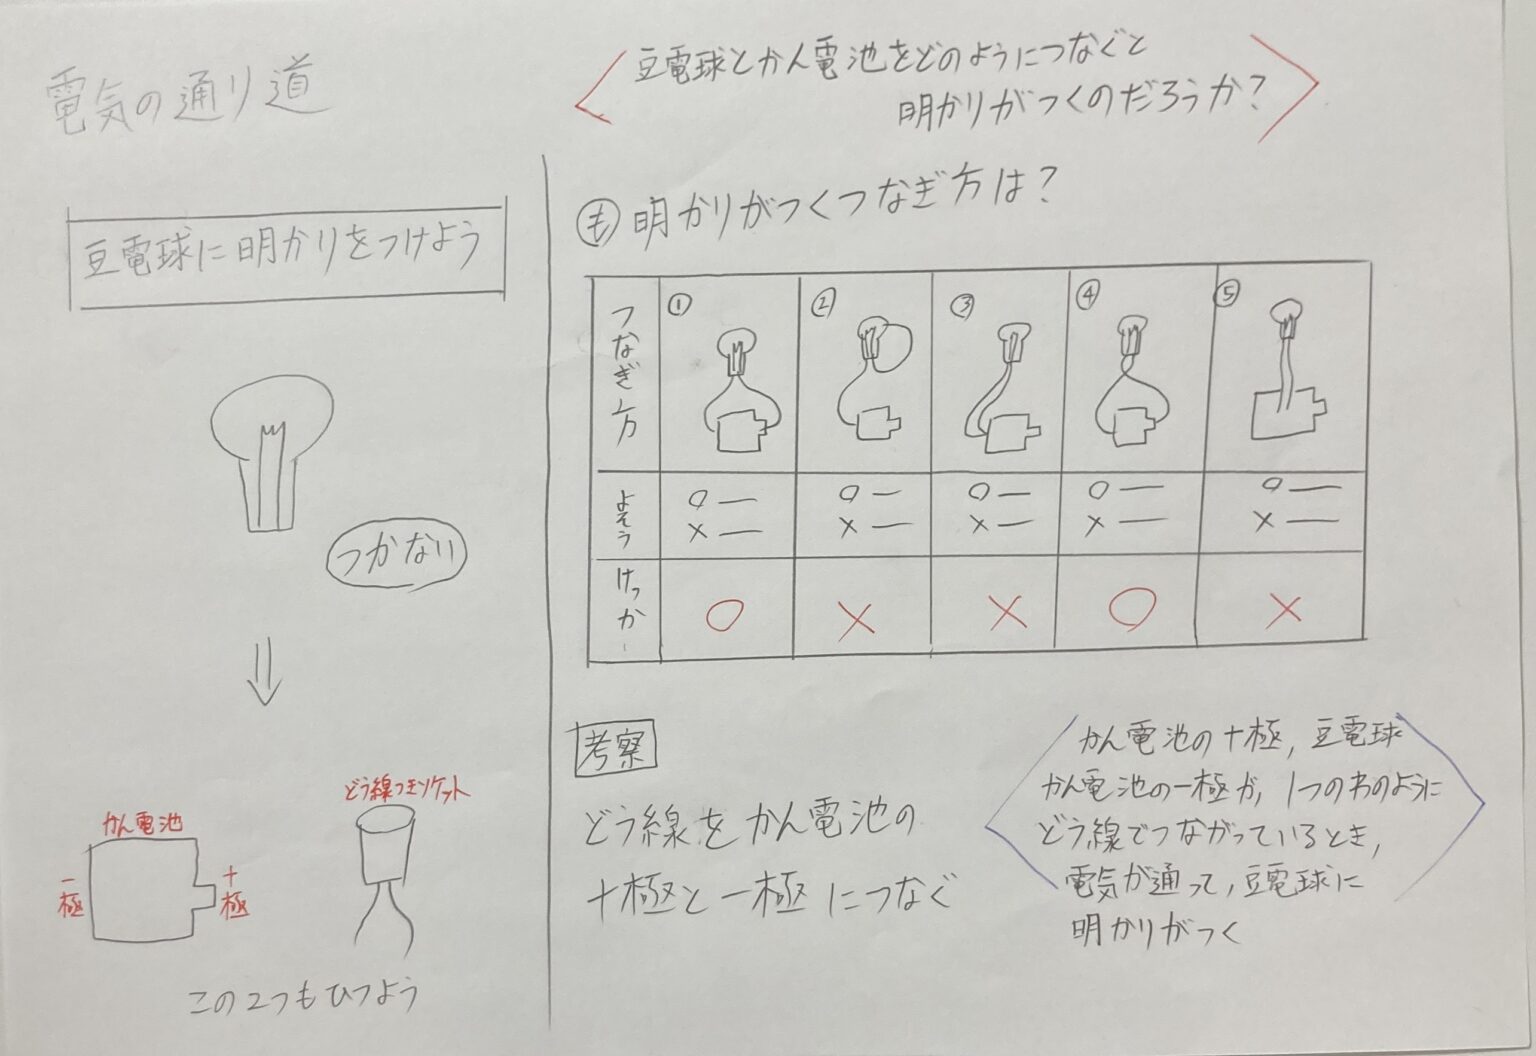 電気の通り道
豆電球に明かりをつけよう
つかない
かん電池
−極
＋極
どう線つきソケット
この2つもひつよう
豆電球とかん電池をどのようにつなぐと
明かりがつくのだろうか?
も 明かりがつくつなぎ方は?
つなぎ方 ① ② ③ ④ ⑤
よそう ○— ○— ○— ○— ○—
×— ×— ×— ×— ×—
けっか ○ × × ○ ×
考察
どう線をかん電池の
＋極と−極につなぐ
かん電池の＋極, 豆電球
かん電池の−極が, 1つのわのように
どう線でつながっているとき,
電気が通って, 豆電球に
明かりがつく